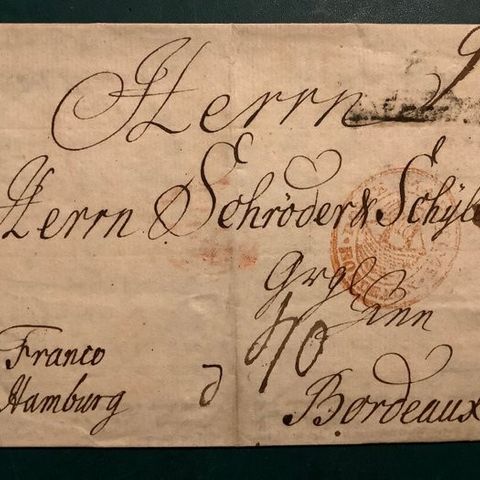 Herrn
Herrn Schröder & Schÿl
Grge
inn
Franco
Hamburg
d
40
Bordeaux